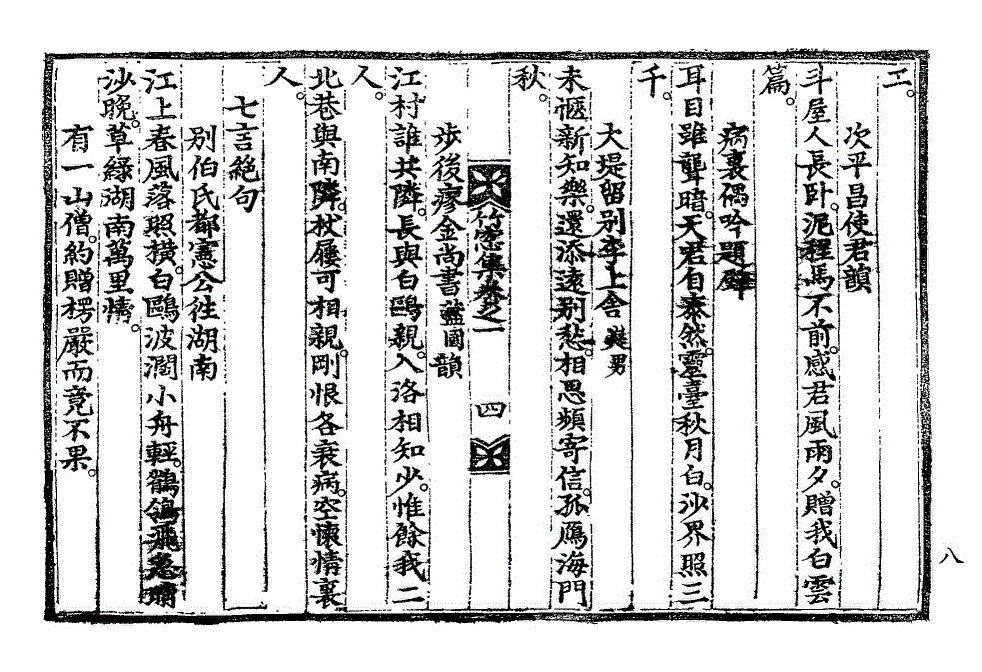 工。
次平昌使君韻
斗屋人長卧。泥程馬不前。感君風雨夕。贈我白雲
篇。
病裏偶吟題壁
耳目雖聾暗。天君自泰然。靈臺秋月白。沙界照三
千。
大堤留別李上舍 嶷男
未愜新知樂。還添遠別愁。相思頻寄信。孤鴈海門
秋。
竹窓集卷之一 四
步後瘳金尚書 蓋國 韻
江村誰共隣。長與白鷗親。入洛相知少。惟餘我二
人。
北巷與南隣。杖屨可相親。剛恨各衰病。空懷情裏
人。
七言絶句
別伯氏都憲公徃湖南
江上春風落照橫。白鷗波濶小舟輕。鶺鴒飛急
沙晚。草緑湖南萬里情。
有一山僧。約贈楞嚴而竟不果。
八